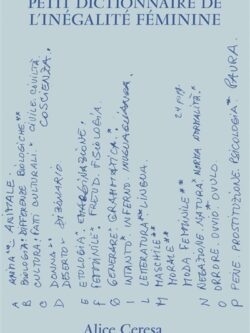 PETIT DICTIONNAIRE DE
L'INÉGALITÉ FÉMININE
A ANIMA* ANIMALE.
B BIOLOGIA* DIFFERENZE BIOLOGICHE**
C CULTURA* (FATI CULTURALI* CIVILE. CIVILTÀ.
COSCIENZA.
D DONNA**
DESERTO* DIZIONARIO.
E ETOLOGIA. EMARGINAZIONE.
F FEMMINILE* FREUDO. FISIOLOGIA.
G GENERARE* GRAMMATICA.*
I INTANTO* INFERNO. INUGUAGLIANZA.
L LETTERATURA** LINGUA.
M MASCHILE*
MORALE**
MODA FEMMINILE**
N NEGAZIONE. NATURA* NORMA NORMALITÀ.*
O ORRORE. OVVIO. OVULO.
P PENE. PROSTITUZIONE. PSICOLOGIA* PAURA.
Alice Ceresa